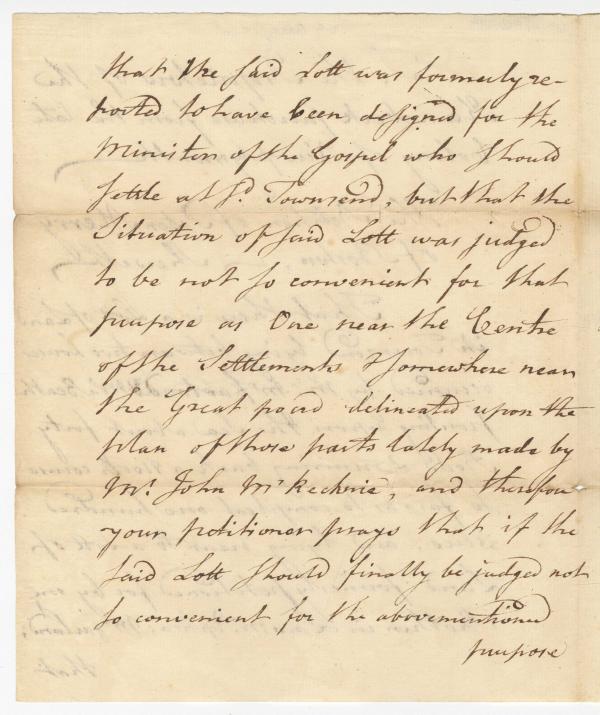 that the said Lott was formerly re-
ported to have been designed for the
Minister of the Gospel who should
settle at sd. Townsend, but that the
Situation of said Lott was judged
to be not so convenient for that
purpose as One near the Centre
of the Settlements & somewhere near
the Great pond delineated upon the
plan of those parts lately made by
Mr. John McKechnie, and therefore
your petitioner prays that if the
said Lott should finally be judged not
so convenient for the abovementioned
purpose